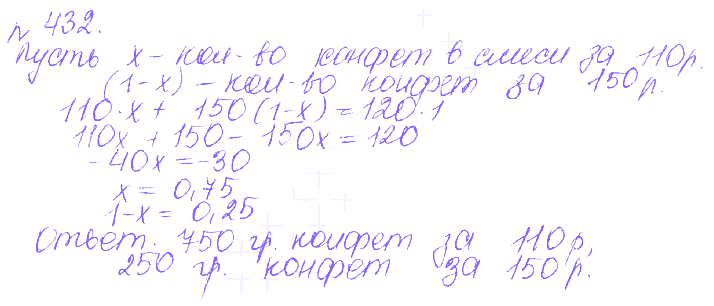 № 432.
Пусть x – кол-во конфет в смеси за 110р.
(1-x) – кол-во конфет за 150р.
110·x + 150(1-x) = 120·1
110x + 150 - 150x = 120
-40x = -30
x = 0,75
1-x = 0,25
Ответ. 750 гр. конфет за 110р,
250 гр. конфет за 150р.